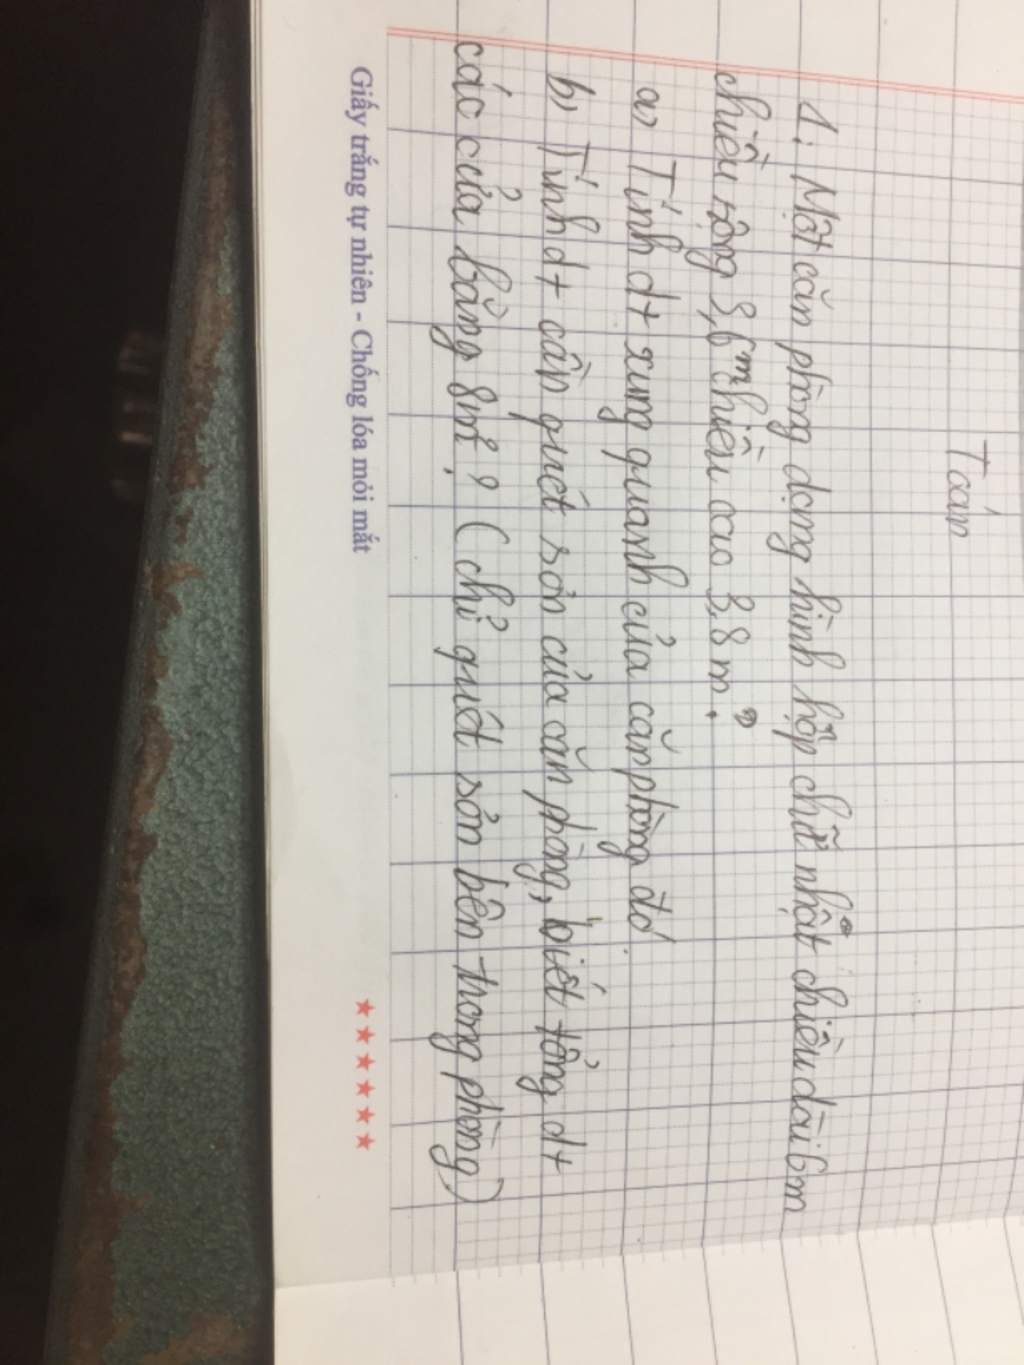 Toán
1: Một căn phòng dạng hình hộp chữ nhật chiều dài 6m
chiều rộng 3,6m chiều cao 3,8 m.
a) Tính dt xung quanh của căn phòng đó
b) Tính dt cần quét sơn của căn phòng, biết tổng dt
các cửa bằng 8m² ? (chỉ quét sơn bên trong phòng)
Giấy trắng tự nhiên - Chống lóa mỏi mắt